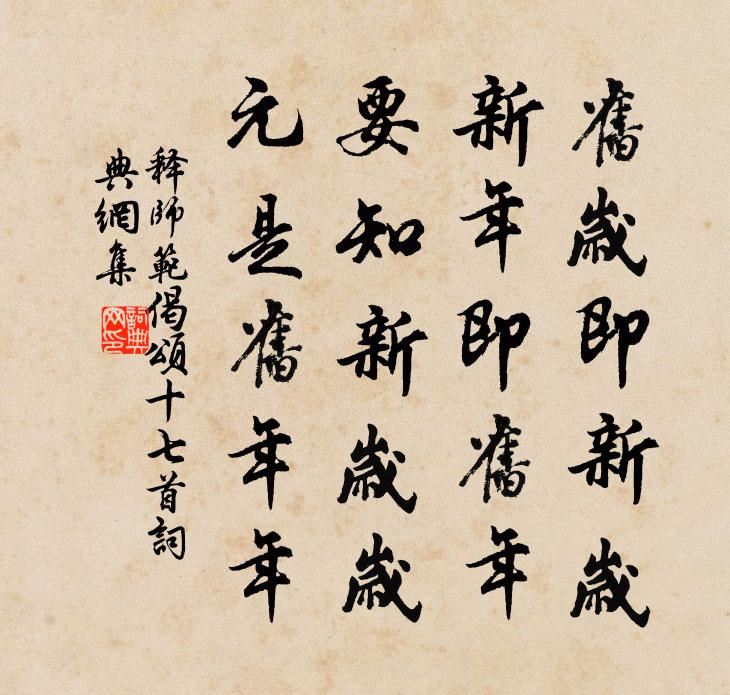 舊歲即新歲
新年即舊年
要知新歲歲
元是舊年年
释師範偈頌十七首詞
典網集
詞典网印